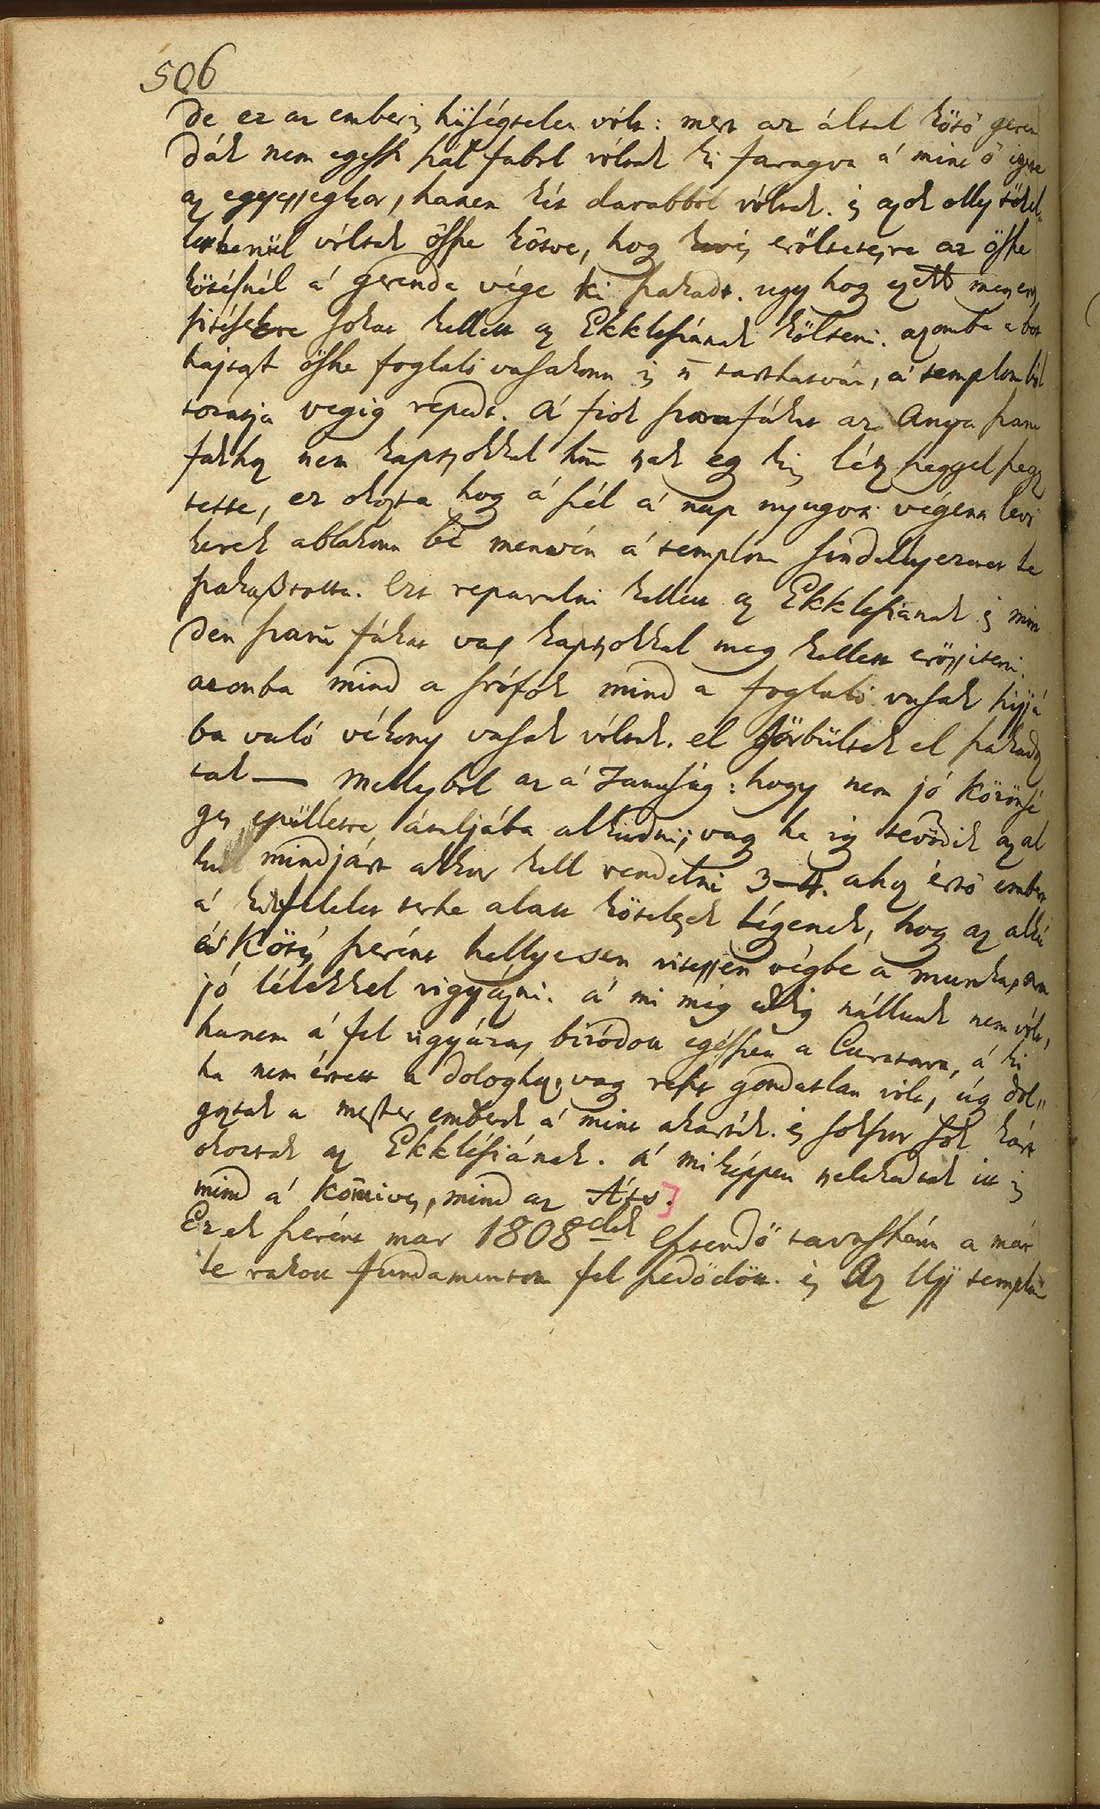 506
De ez az ember is hűségtelen vólt: mert az által kötő geren
dák nem egessz szál fából vóltak ki faragva á mint ő igérte
az egyességkor, hanem két darabból vóltak. és azok olly tökél
letlenül vóltak öszve kötve, hog kevés erőltetésre az öszve
kötésnél á gerenda vége ki szakadt. ugy hog ezett meg erő
sitésekre sokat kellett az Ekklesiának költeni. azomba a bót
hajtást öszve foglaló vasakonn is n tarthatván, á templom bót
tozatja vegig repedt. A fiók szarufákat az Anya szaru
fákhoz nem kaptsokkal hnm tsak eg kis létz szeggel szegez
tette, ez okozta hog á szél á nap nyugoti végenn levő
kerek ablakonn bé menvén á templom sindellyezetet le
szakasztotta. Ezt reparalni kellett az Ekklesiának és min
den szaru fákat vas kaptsokkal meg kellett erőssiteni.
azonba mind a srófok mind a foglaló vasak hijjá
ba való vékony vasak vóltak. el görbültek el szakadoz
tak — Mellyből az á Tanuság: hogy nem jó közönsé
ges epülletre áruljába alkudni; vag ha ig tevődik az al
ku mindjárt akkor kell rendelni 3–4. ahoz értő embert
á kik felelet terhe alatt kötelesek légenek, hog az alku
és Kötés szerént hellyesen vitessjen végbe a munka, arra
jó lélekkel vigyázni. á mi még eddig nállunk nem vólt,
hanem á fel vigyázás bizódott egészszen a Curatorra, á ki
ha nem értett a dologhoz, vag rest gondatlan vólt, úg dol„
goztak a mester emberek á mint akarták. és sokszor sok kárt
okoztak az Ekklésiának. á miképpen tselekedtek itt is
mind á Kőmives, mind az Áts.]
Ezek szerént már 1808dik Esztendő tavasszánn a már
le rakott fundamentom fel szedődött. és Az Ujj templom